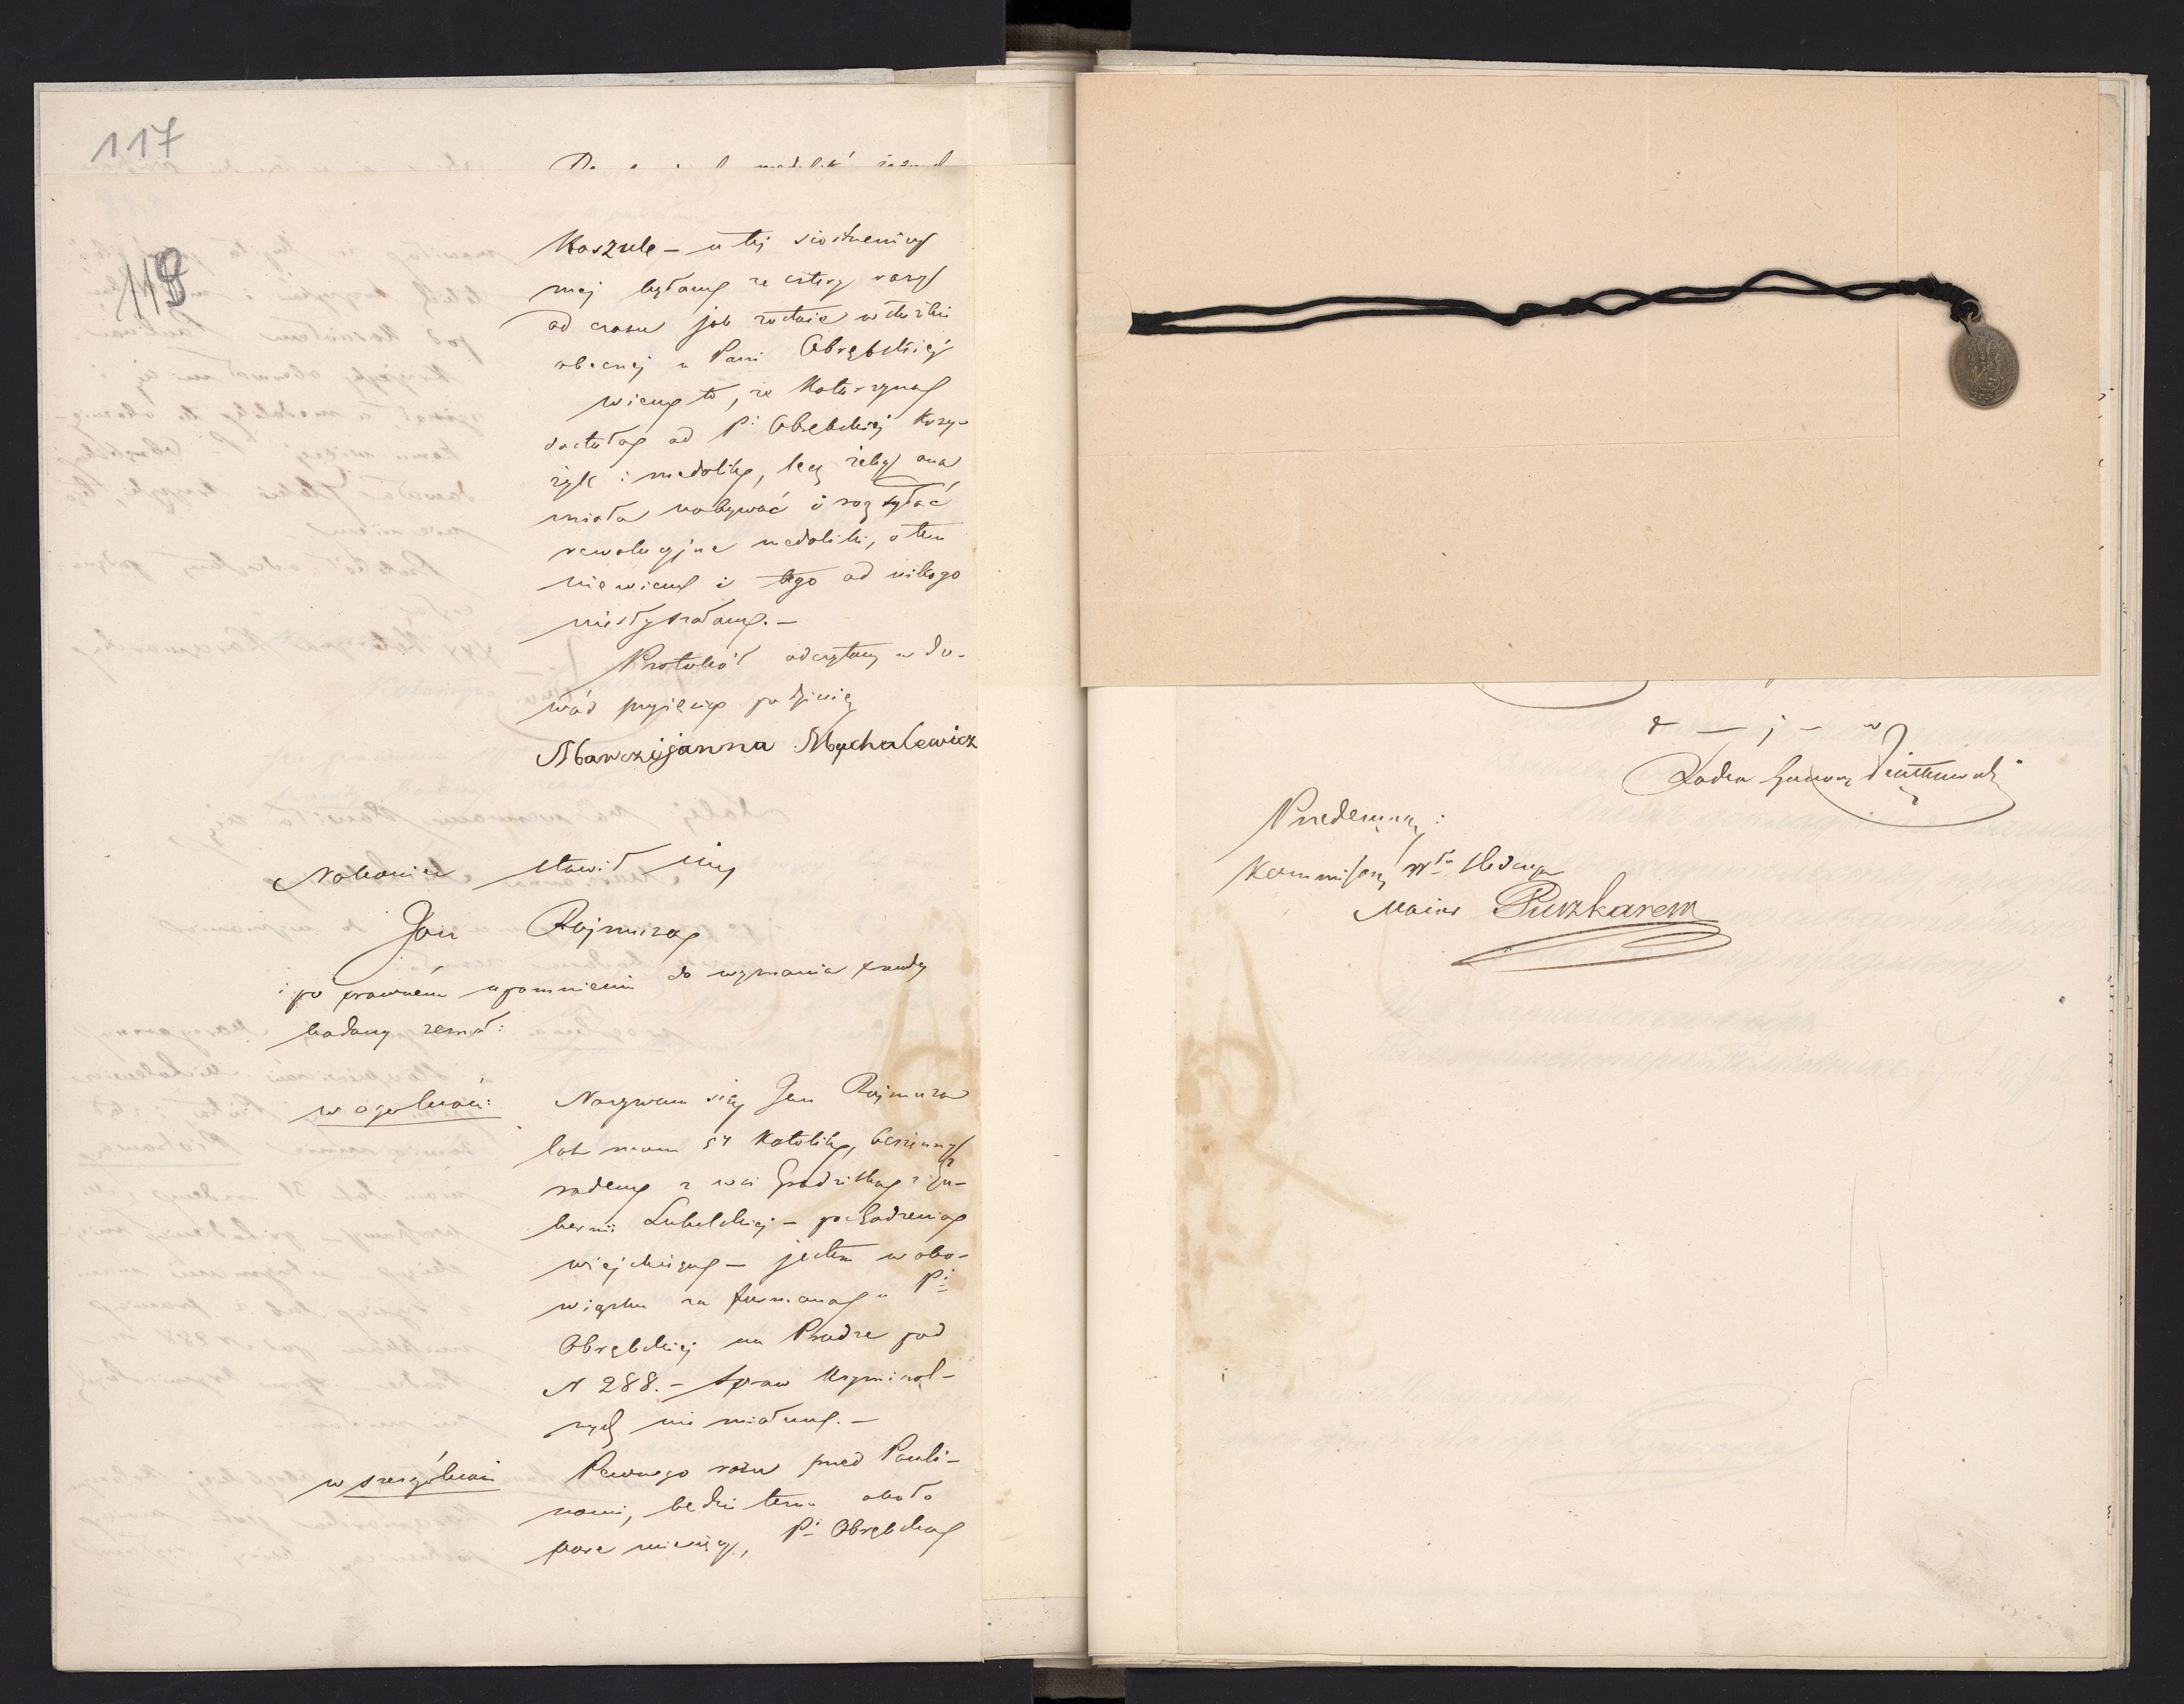 117
119
Koszule – u tej siostrzenicy
mej byłam ze cztery razy
od czasu jak zostaje w służbie
obecnej u Pani Obrębskiej
wiem to, że Katarzyna
dostała od P: Obrębskiej Krzy-
żyk i medalik, lecz żeby ona
miała nabywać i rozsyłać
rewolucyjne medaliki, o tem
niewiem i tego od nikogo
niesłyszałam. –
Protokół odczytany w do-
wód przyjęcia podpisuję
Marcyijanna Mychalewicz
Nakoniec stawił się
Jan Rojmuza
i po prawném upomnieniu do wyznania prawdy
badany zeznał:
w ogólności: Nazywam się Jan Rojmuza
lat mam 54 Katolik, bezżenny
rodem z wsi Grodziska z Gu-
bernii Lubelskiej – pochodzenia
wiejskiego – jestem w obo-
wiązku za furmana u P:
Obrębskiej na Pradze pod
N 288. – Spraw Kryminal-
nych nie miałem. –
w szczególności Pewnego razu przed Pauli-
nami, będzie temu około
parę miesięcy, P: Obrębska
Przedemną:
Kommisarz
Maior Puzkarem